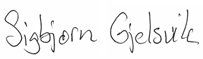 Sigbjørn Gjelsvik